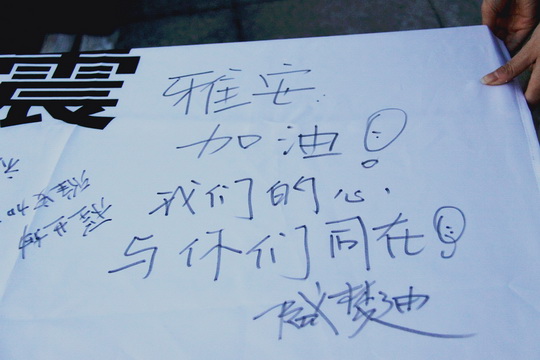 震
雅安
加油!
我们的心
与你们同在!
雅安加